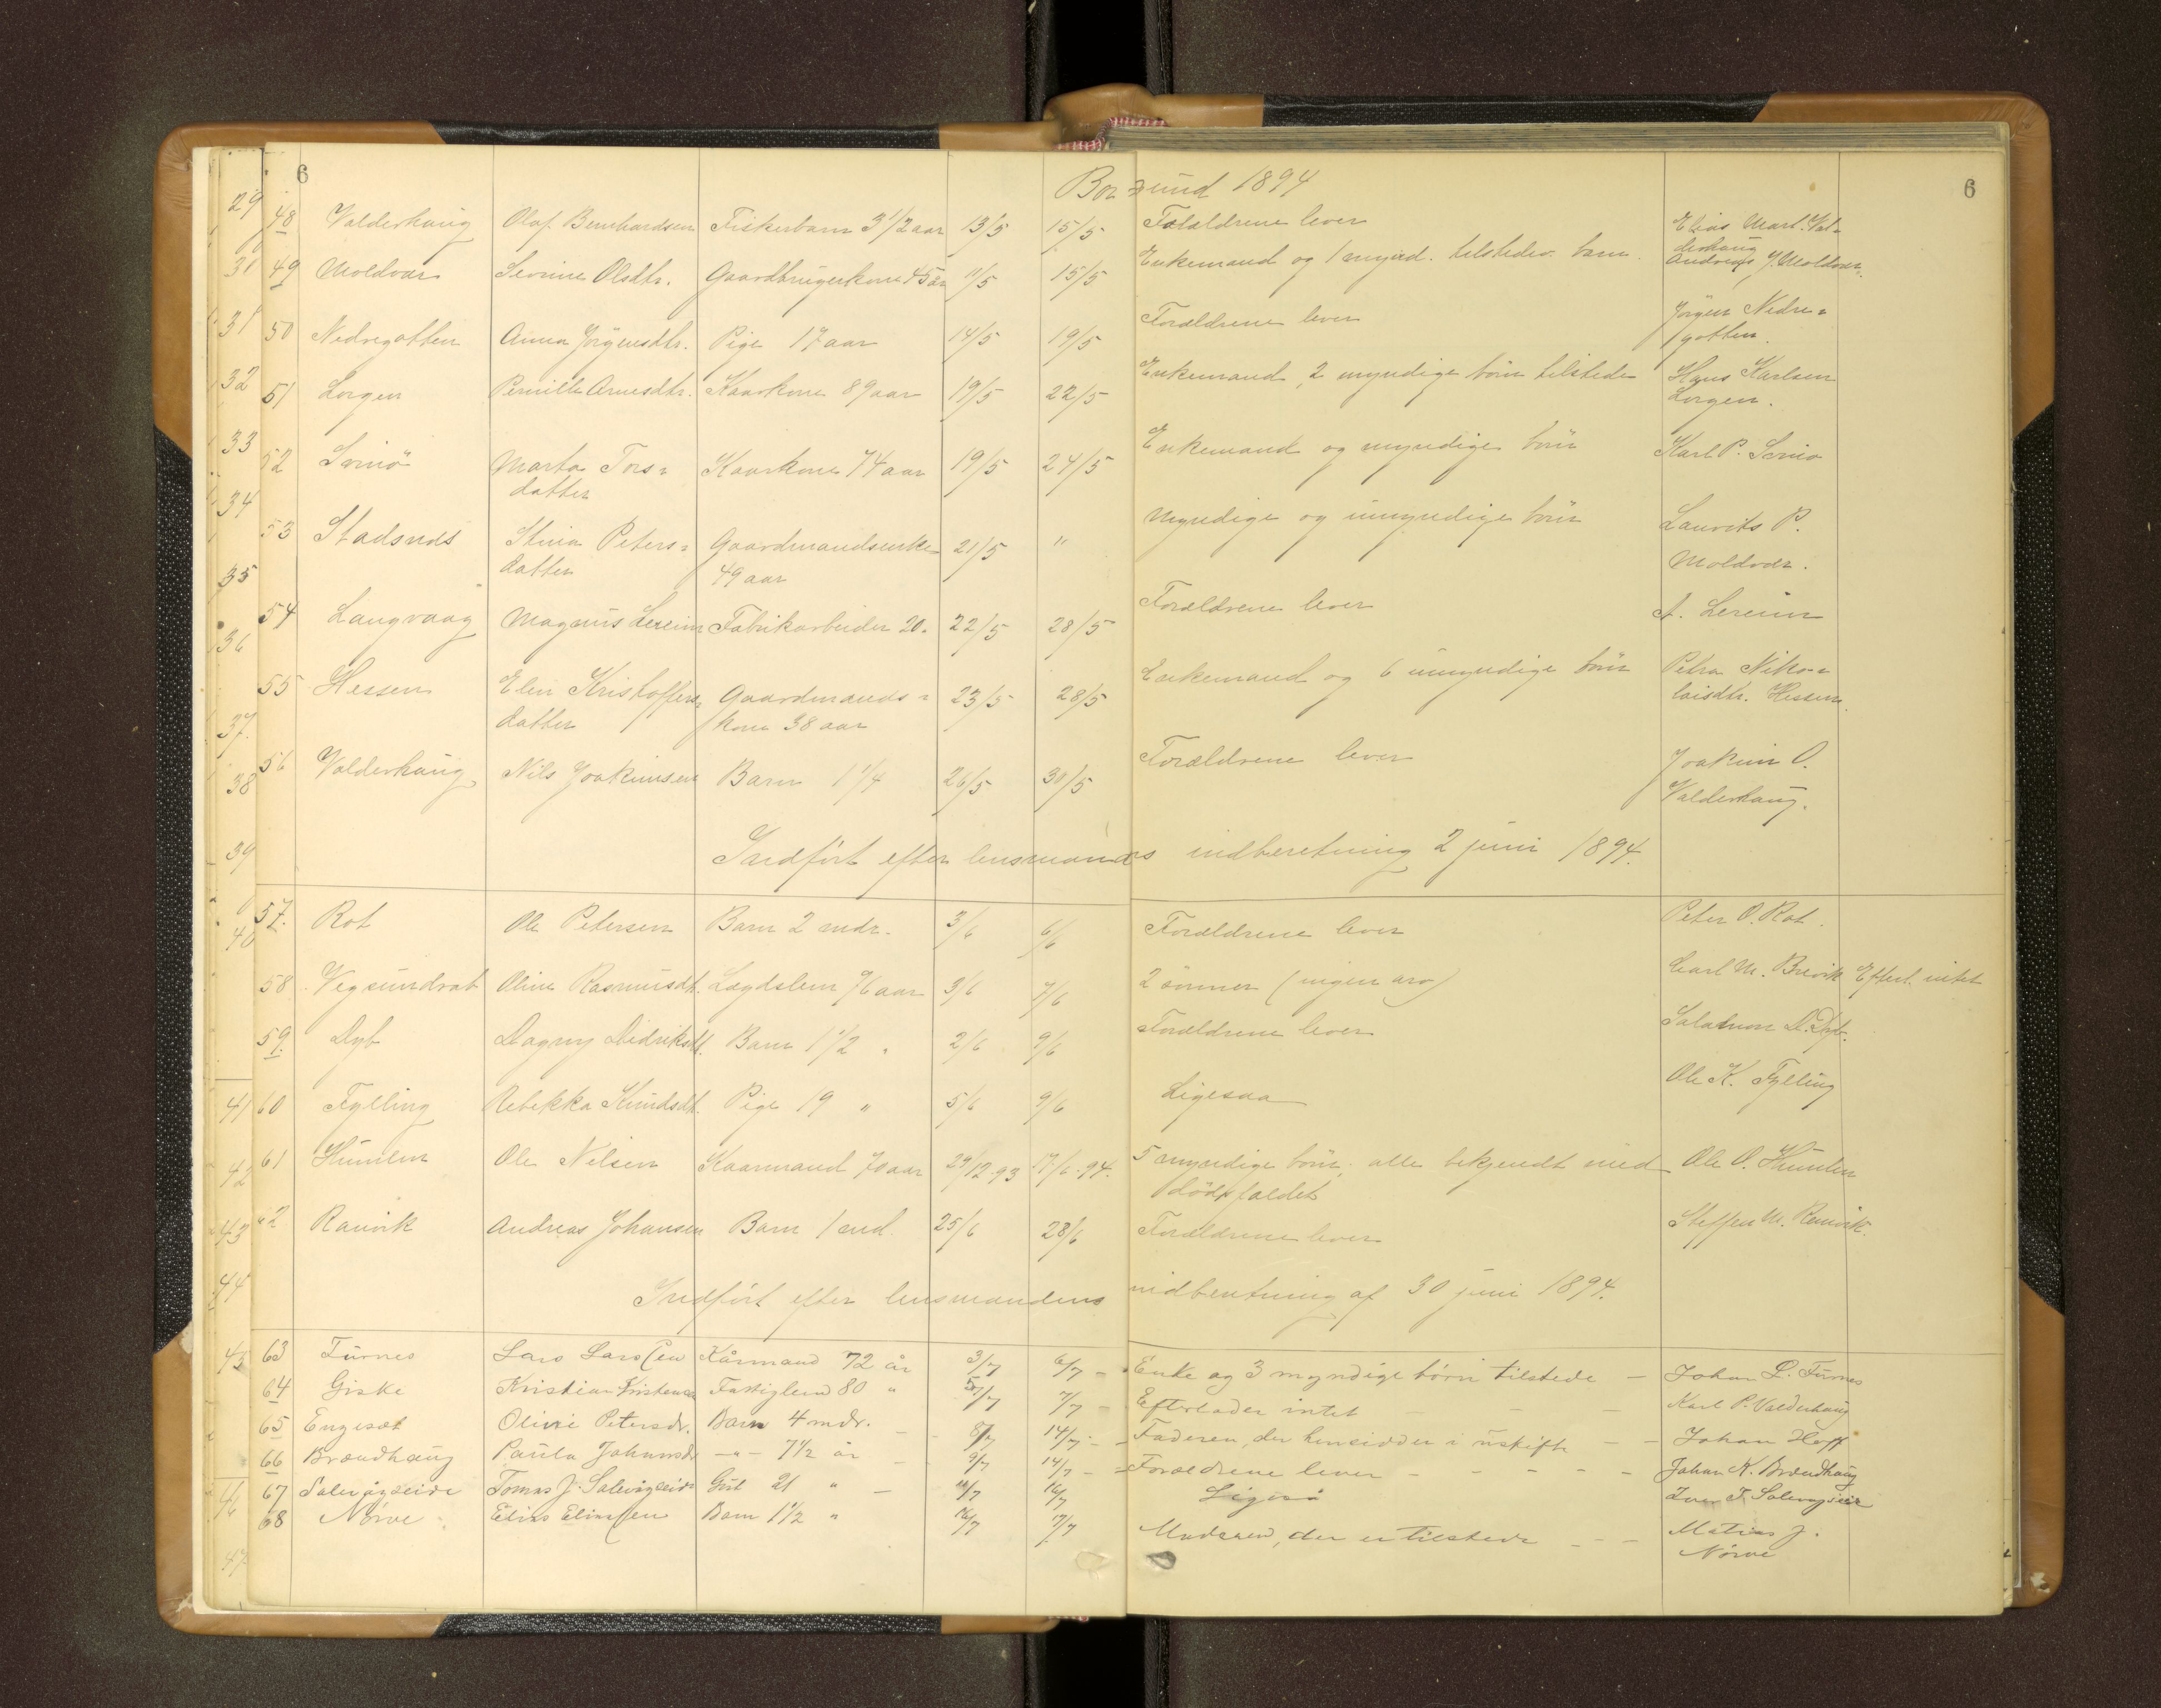 6
6
Borgund 1894
48 Valderhaug Olaf Bernhardsen Fiskerbarn 3 1/2 aar 13/5 15/5 Forældrene lever Elias Mart. Val-
derhaug
49 Moldvær Sevrine Olsdtr. Gaardbrugerkone 45 aar 11/5 15/5 Enkemand og 1 mynd. tilstedev. barn. Andreas J. Moldvær.
50 Nedregotten Anna Jörgensdtr. Pige 17 aar 14/5 19/5 Forældrene lever Jörgen Nedre-
gotten.
51 Lorgen Pernille Arnesdtr. Kaarkone 89 aar 19/5 22/5 Enkemand, 2 myndige börn tilstede Hans Karlsen
Lorgen.
52 Svinö Marta Tors- Kaarkone 74 aar 19/5 24/5 Enkemand og myndige börn Karl P. Svinö
datter
53 Stadsnes Stina Peters- Gaardmandsenke 21/5 " Myndige og umyndige börn Laurits P.
datter 49 aar Moldvær.
54 Langvaag Magnus Lereim Fabrikarbeider 20. 22/5 28/5 Forældrene lever A. Lereim
55 Hessen Elen Kristoffers- Gaardmands- 23/5 28/5 Enkemand og 6 umyndige börn Petra Niko-
datter kone 38 aar laisdtr. Hessen.
56 Valderhaug Nils Joakimsen Barn 1 1/4 26/5 30/5 Forældrene lever Joakim O.
Valderhaug.
Indfört efter lensmandens indberetning 2 juni 1894.
57. Rot Ole Petersen Barn 2 mdr. 3/6 6/6 Forældrene lever Peter O. Rot.
58 Vegsundrot Oline Rasmusdt. Lægdslem 76 aar 3/6 7/6 2 sönner (ingen arv) Carl M. Brevik Efterl. intet
59. Dyb Dagny Didriksdt. Barn 1 1/2 " 2/6 9/6 Forældrene lever Salamon D. Dyb.
60 Fylling Rebekka Knudsdt. Pige 19 " 5/6 9/6 Ligesaa Ole K. Fylling
61 Humlen Ole Nilsen Kaarmand 70 aar 29/12 93 17/6 94. 5 myndige börn, alle bekjendt med Ole O. Humlen
dödsfaldet
62 Ranvik Andreas Johansen Barn 1 md. 25/6 28/6 Forældrene lever Steffen M. Remvik.
Indfört efter lensmandens indberetning af 30 juni 1894.
63 Turnes Lars Larssen Kårmand 72 år 3/7 6/7 - Enke og 3 myndige börn tilstede - Johan L. Turnes
64 Giske Kristian Kristensen Fattiglem 80 " 5/7 7/7 - Efterlader intet - - - Karl P. Valderhaug
65 Engeset Olivie Petersdr. Barn 4 mdr. - 8/7 14/7 - - Faderen, der hensidder i uskifte - - Johan Hoff
66 Brændhaug Paula Johansdr. -"- 7 1/2 år - 9/7 14/7 - - Forældrene lever - - - - - Johan K. Brændhaug
67 Salevågseide Tomas J. Salevågseide Gut 21 " - 11/7 16/7 Ligeså Iver T. Salevågseide
68 Nörve Elias Eliassen Barn 1 1/2 " 16/7 17/7 Moderen, der er tilstede - - - Matias J.
Nörve
29
30
31
32
33
34
35
36
37.
38
39
40
41
42
43
44
45
46
47